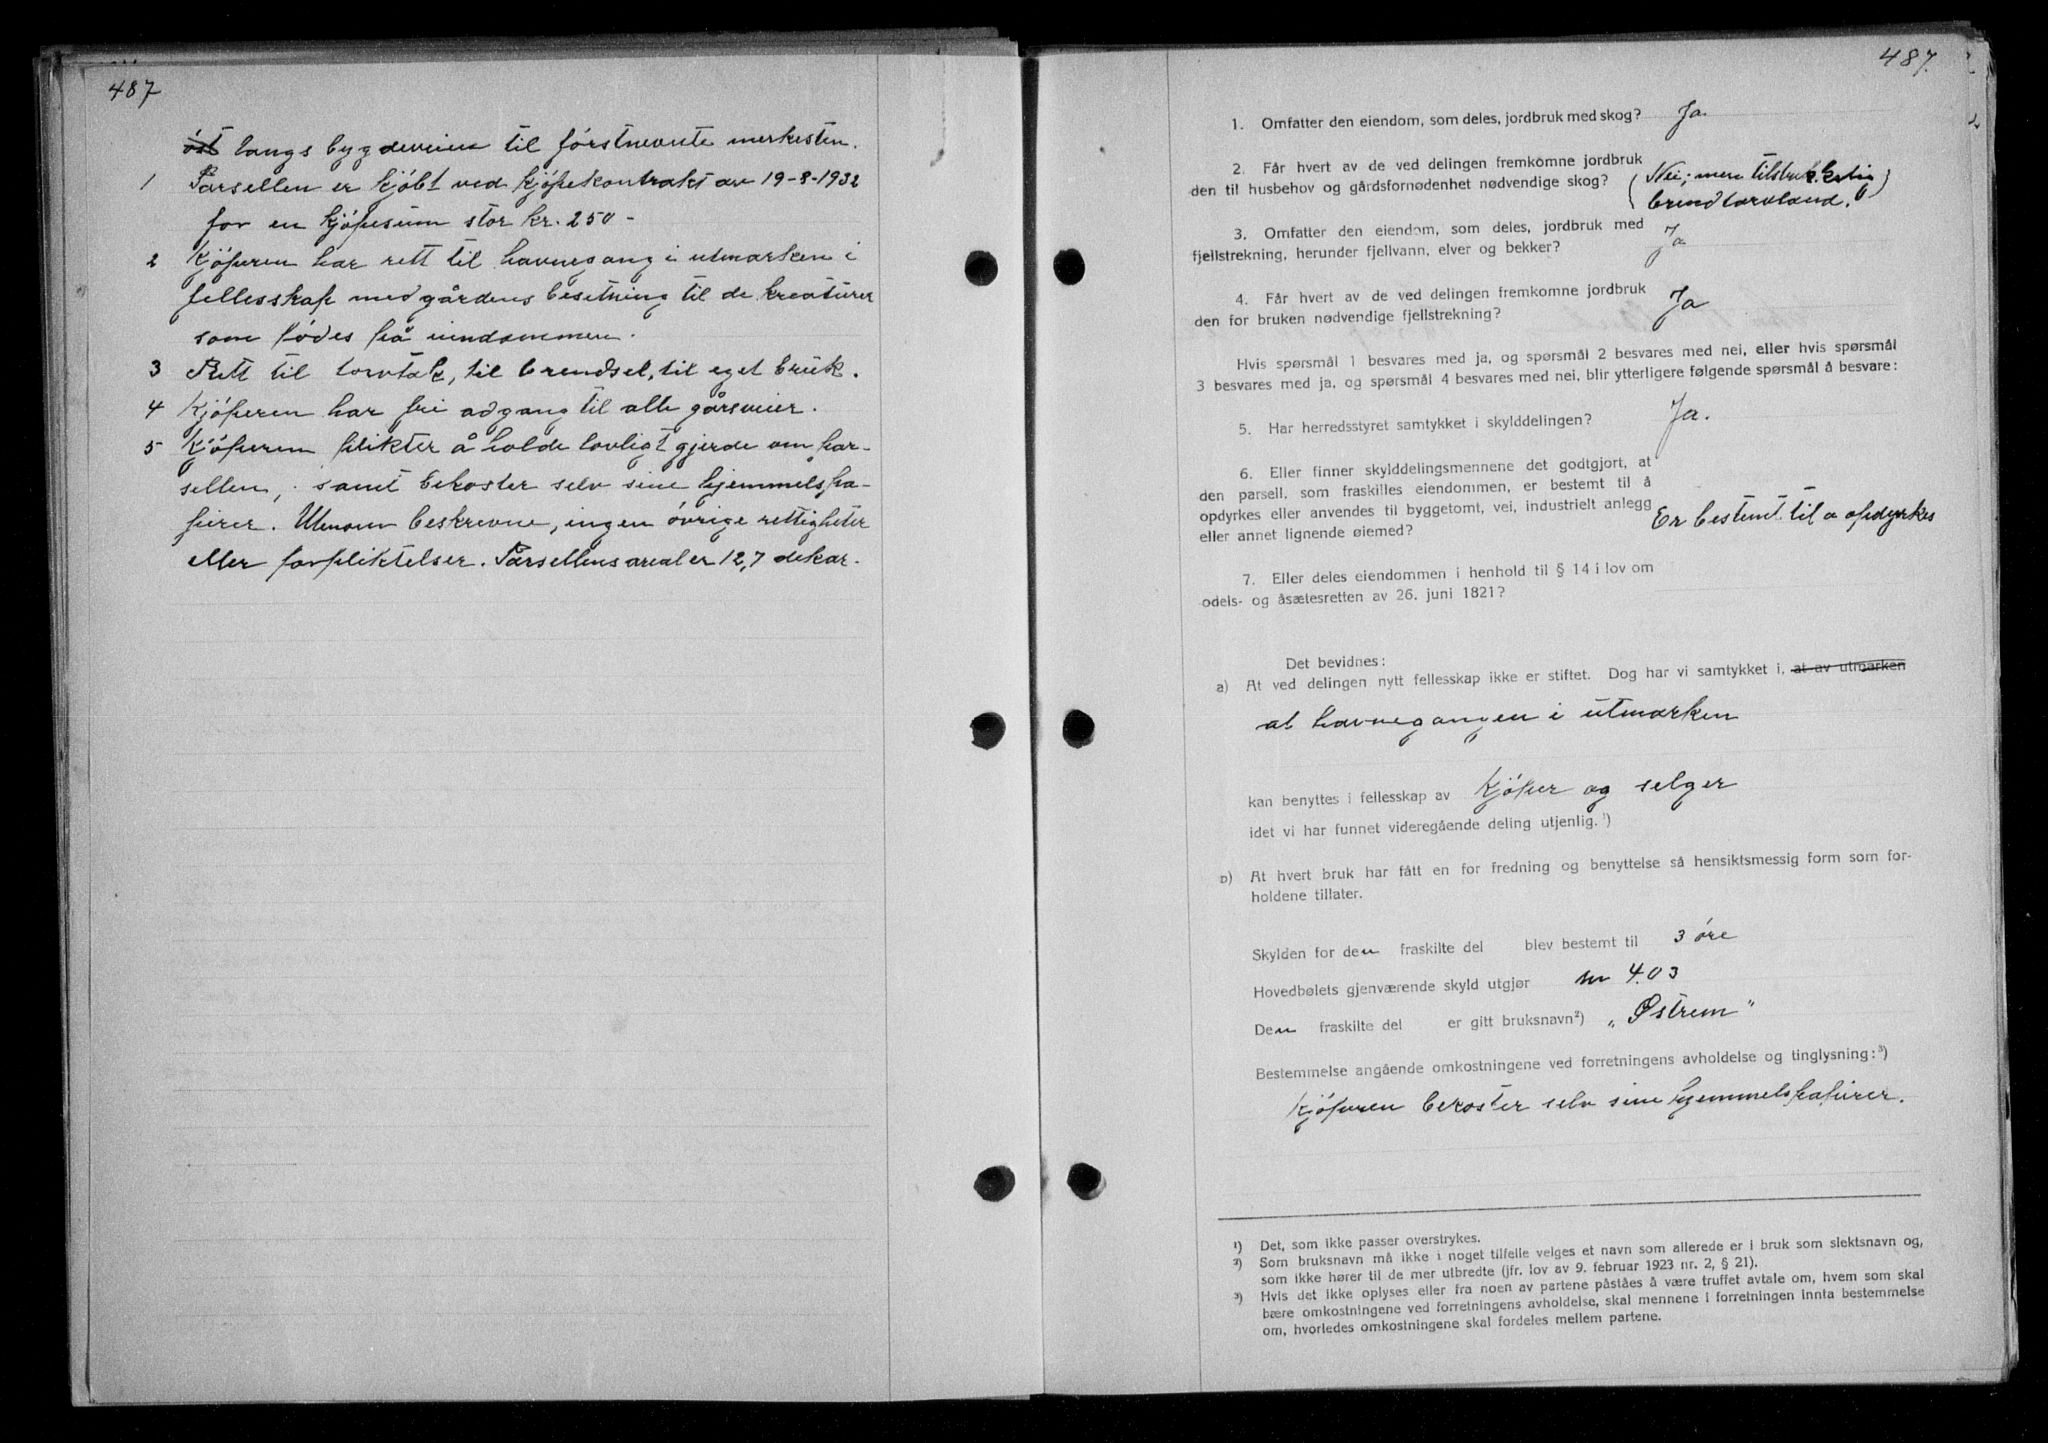 487
øst langs bygdeveien til førstnevnte merkesten.
1 Parsellen er kjöbt ved kjöpekontrakt av 19-8-1932
for en kjöpesum stor kr. 250-
2 Kjöperen har rett til havnegang i utmarken i
fellesskap med gårdens besetning til de kreaturer
som födes på eiendommen.
3 Rett til torvtak, til brendsel, til eget bruk.
4 Kjöperen har fri adgang til alle gårsveier.
5 Kjöperen plikter å holde lovligt gjerde om par-
sellen, samt bekoster selv sine hjemmelspa-
pirer. Utenom beskrevne, ingen övrige rettigheter
eller forpliktelser. Parsellens areal er 12,7 dekar.
487.
1. Omfatter den eiendom, som deles, jordbruk med skog? Ja.
2. Får hvert av de ved delingen fremkomne jordbruk
den til husbehov og gårdsfornødenhet nødvendige skog? (Nei; men tilstrekkelig
brendtorvland.)
3. Omfatter den eiendom, som deles, jordbruk med
fjellstrekning, herunder fjellvann, elver og bekker? Ja
4. Får hvert av de ved delingen fremkomne jordbruk
den for bruken nødvendige fjellstrekning? Ja
Hvis spørsmål 1 besvares med ja, og spørsmål 2 besvares med nei, eller hvis spørsmål
3 besvares med ja, og spørsmål 4 besvares med nei, blir ytterligere følgende spørsmål å besvare:
5. Har herredsstyret samtykket i skylddelingen? Ja.
6. Eller finner skylddelingsmennene det godtgjort, at
den parsell, som fraskilles eiendommen, er bestemt til å
opdyrkes eller anvendes til byggetomt, vei, industrielt anlegg
eller annet lignende øiemed? Er bestemt til a opdyrkes
7. Eller deles eiendommen i henhold til § 14 i lov om
odels- og åsætesretten av 26. juni 1821?
Det bevidnes:
a) At ved delingen nytt fellesskap ikke er stiftet. Dog har vi samtykket i, at av utmarken
at havnegangen i utmarken
kan benyttes i fellesskap av kjöper og selger
idet vi har funnet videregående deling utjenlig.¹)
b) At hvert bruk har fått en for fredning og benyttelse så hensiktsmessig form som for-
holdene tillater.
Skylden for den fraskilte del blev bestemt til 3 öre
Hovedbølets gjenværende skyld utgjør mr 4.03
Den fraskilte del er gitt bruksnavn²) „Østrem"
Bestemmelse angående omkostningene ved forretningens avholdelse og tinglysning:³)
Kjöperen bekoster selv sine hjemmelspapirer.
¹) Det, som ikke passer overstrykes.
²) Som bruksnavn må ikke i noget tilfelle velges et navn som allerede er i bruk som slektsnavn og,
som ikke hører til de mer utbredte (jfr. lov av 9. februar 1923 nr. 2, § 21).
³) Hvis det ikke oplyses eller fra noen av partene påståes å være truffet avtale om, hvem som skal
bære omkostningene ved forretningens avholdelse, skal mennene i forretningen innta bestemmelse
om, hvorledes omkostningene skal fordeles mellem partene.